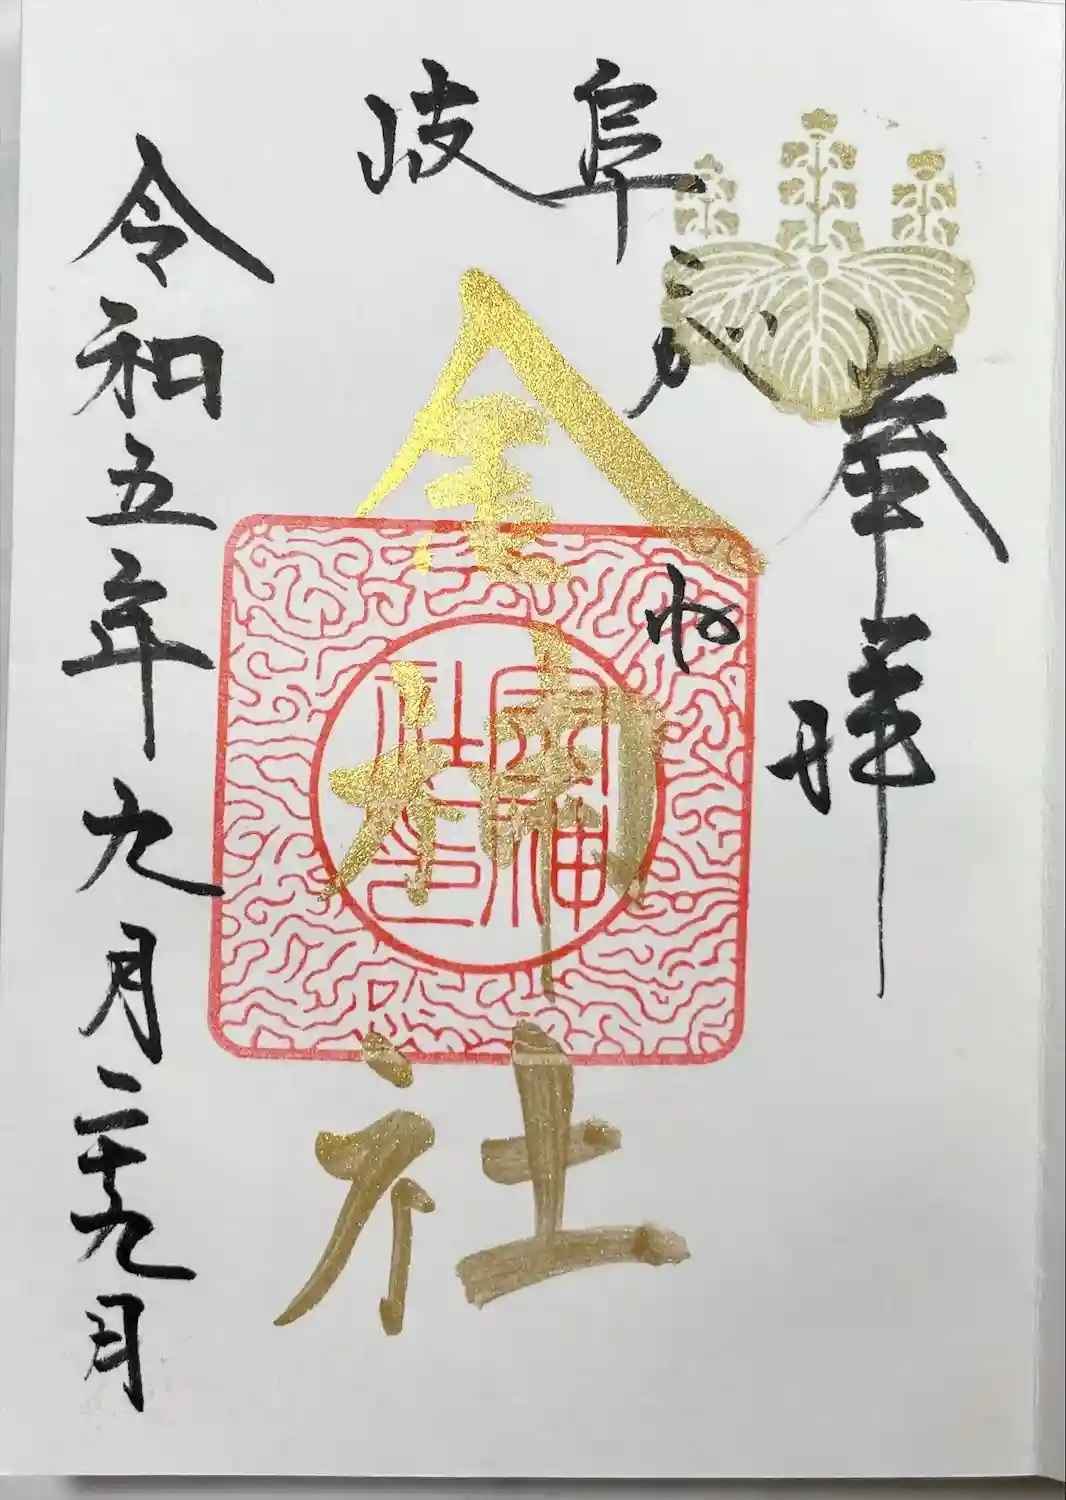 奉拝
岐阜
こがね
金神社
金神社印
令和五年九月二十九日